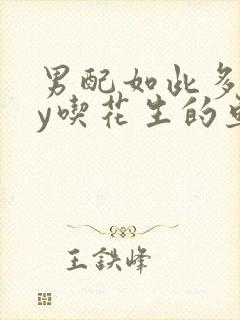 男配如此多
y喫花生的
王鉄峰